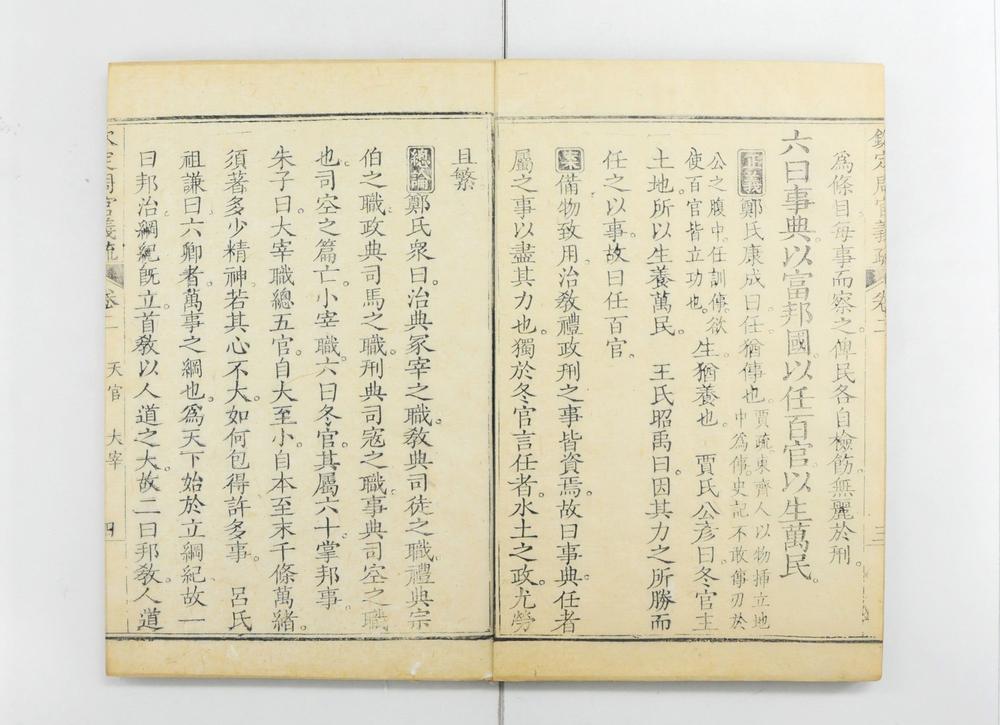 欽定周官義疏 卷二 三
為條目每事而察之。俾民各自檢飭。無麗於刑。
六曰事典。以富邦國。以任百官。以生萬民。
正義 鄭氏康成曰。任猶傳也。賈疏。東齊人以物插立地中為傳。史記不敢傳刃於
公之腹中。任訓傳。欲使百官皆立功也。生猶養也。 賈氏公彥曰。冬官主
土地。所以生養萬民。 王氏昭禹曰。因其力之所勝而
任之以事。故曰任百官。
案 備物致用。治敎禮政刑之事皆資焉。故曰事典。任者
屬之事以盡其力也。獨於冬官言任者。水土之政。尤勞
且繁
總論 鄭氏衆曰。治典冢宰之職。敎典司徒之職。禮典宗
伯之職。政典司馬之職。刑典司寇之職。事典司空之職
也。司空之篇亡。小宰職。六曰冬官。其屬六十。掌邦事。
朱子曰。大宰職總五官。自大至小。自本至末。千條萬緒。
須著多少精神。若其心不大。如何包得許多事。 呂氏
祖謙曰。六卿者。萬事之綱也。為天下始於立綱紀。故一
曰邦治。綱紀旣立。首敎以人道之大。故二曰邦敎。人道
欽定周官義疏 卷二 天官 大宰 四